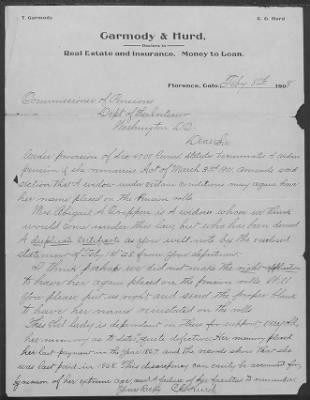 T. Garmody
C. D. Hurd
Garmody & Hurd,
Dealers in
Real Estate and Insurance. Money to Loan.
Florence, Colo. Feby 8th 1908
Commissioner of Pensions
Dept of the Interior
Washington D.C.
Dear Sir
Under provision of Sec 4708 Revised Statutes terminates a widow
pension if she remarries Act of March 3rd 1901 amends said
section that a widow under certain conditions may again have
her name placed on the Pension rolls
Mrs Abigail A. is a widow whom we think
would come under this law but who has been denied
A duplicate certificate as you will note by the enclosed
statement of Feby 1st '08 from your department.
I think perhaps we did not make the right application
to have her again placed on the pension rolls Will
you please put us right and send the proper blank
to have her name reinstated on the rolls
This Old lady is dependent on others for support
her memory as to dates quite defective. Her memory places
her last payment in the year 1867 and the records show that she
was last paid in 1868. This discrepancy can easily be accounted for
by reason of her extreme age, and a failure of her faculties to remember
Yours Resply C D Hurd